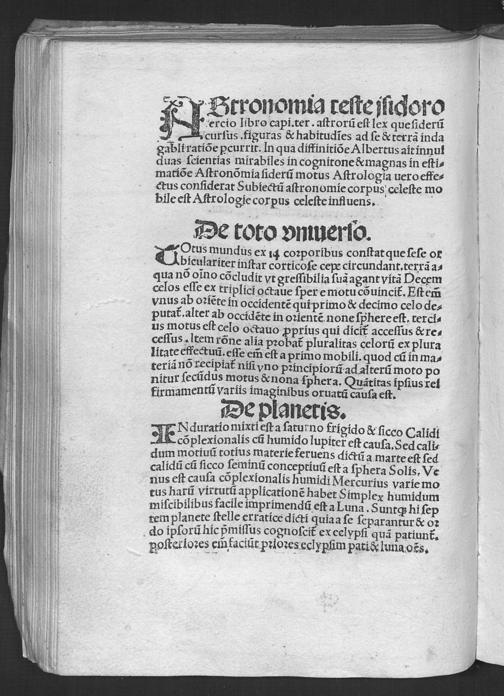 AStronomia teste jsidoro
tercio libro capi.ter. astrorū est lex que siderū
cursus. figuras & habitudīes ad se & terrā inda
gabili ratiōe pcurrit. In qua diffinitiōe Albertus ait innui
duas scientias mirabiles in cognitone & magnas in esti-
matiōe Astronōmia siderū motus Astrologia uero effe-
ctus considerat Subiectū astronomie corpus celeste mo
bile est Astrologie corpus celeste influens.
De toto vniuerso.
TOtus mundus ex 14 corporibus constat que sese or
biculariter instar corticose cepe circundant. terrā a-
qua nō oīno cōcludit vt gressibilia suā agant vitā Decem
celos esse ex triplici octaue spere motu cōuincit. Est em̄
vnus ab oriēte in occidentē qui primo & decimo celo de-
putat. alter ab occidēte in orientē none sphere est. terci-
us motus est celo octauo pprius qui dicit accessus & re-
cessus. Item rōne alia probat pluralitas celorū ex plura
litate effectuū. esse em̄ est a primo mobili. quod cū in ma-
teriā nō recipiat nisi vno principiorū ad alterū moto po
nitur secūdus motus & nona sphera. Quātitas ipsius rei
firmamentū variis imaginibus oruatū causa est.
De planetis.
INduratio mixti est a saturno frigido & sicco Calidi
cōplexionalis cū humido Iupiter est causa. Sed cali-
dum motiuū totius materie feruens dictū a marte est sed
calidū cū sicco seminū conceptiuū est a sphera Solis. Ve
nus est causa cōplexionalis humidi Mercurius varie mo
tus harū virtutū applicationē habet Simplex humidum
miscibilibus facile imprimendū est a Luna. Suntq hi sep
tem planete stelle erratice dicti quia a se separantur & or
do ipsorū hic pmissus cognoscit ex eclypsi quā patiunt.
posteriores em̄ faciūt priores eclypsim pati & luna oēs.